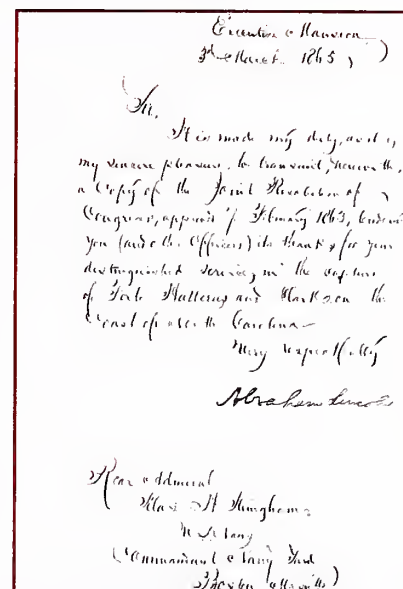 Executive Mansion
3rd March 1865
Sir,
It is made my duty, as it is
my sincere pleasure, to transmit, herewith,
a Copy of the Joint Resolution of
Congress, approved 7 February 1863, tendering
you (and other Officers) its thanks for your
distinguished service, in the capture
of Forts Hatteras and Clark on the
Coast of North Carolina—
Very respectfully
Abraham Lincoln
Rear Admiral
Silas H Stringham
U S Navy
Commandant Navy Yard
Boston